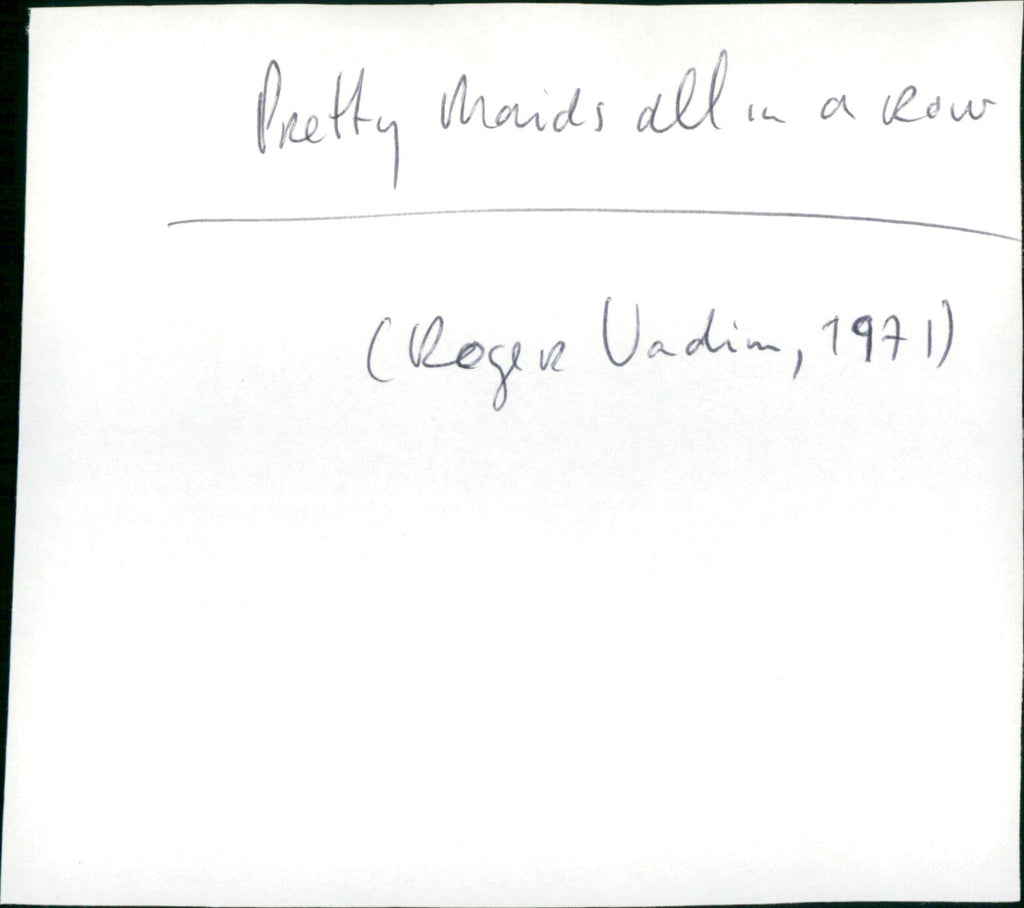 Pretty Maids all in a Row
(Roger Vadim, 1971)